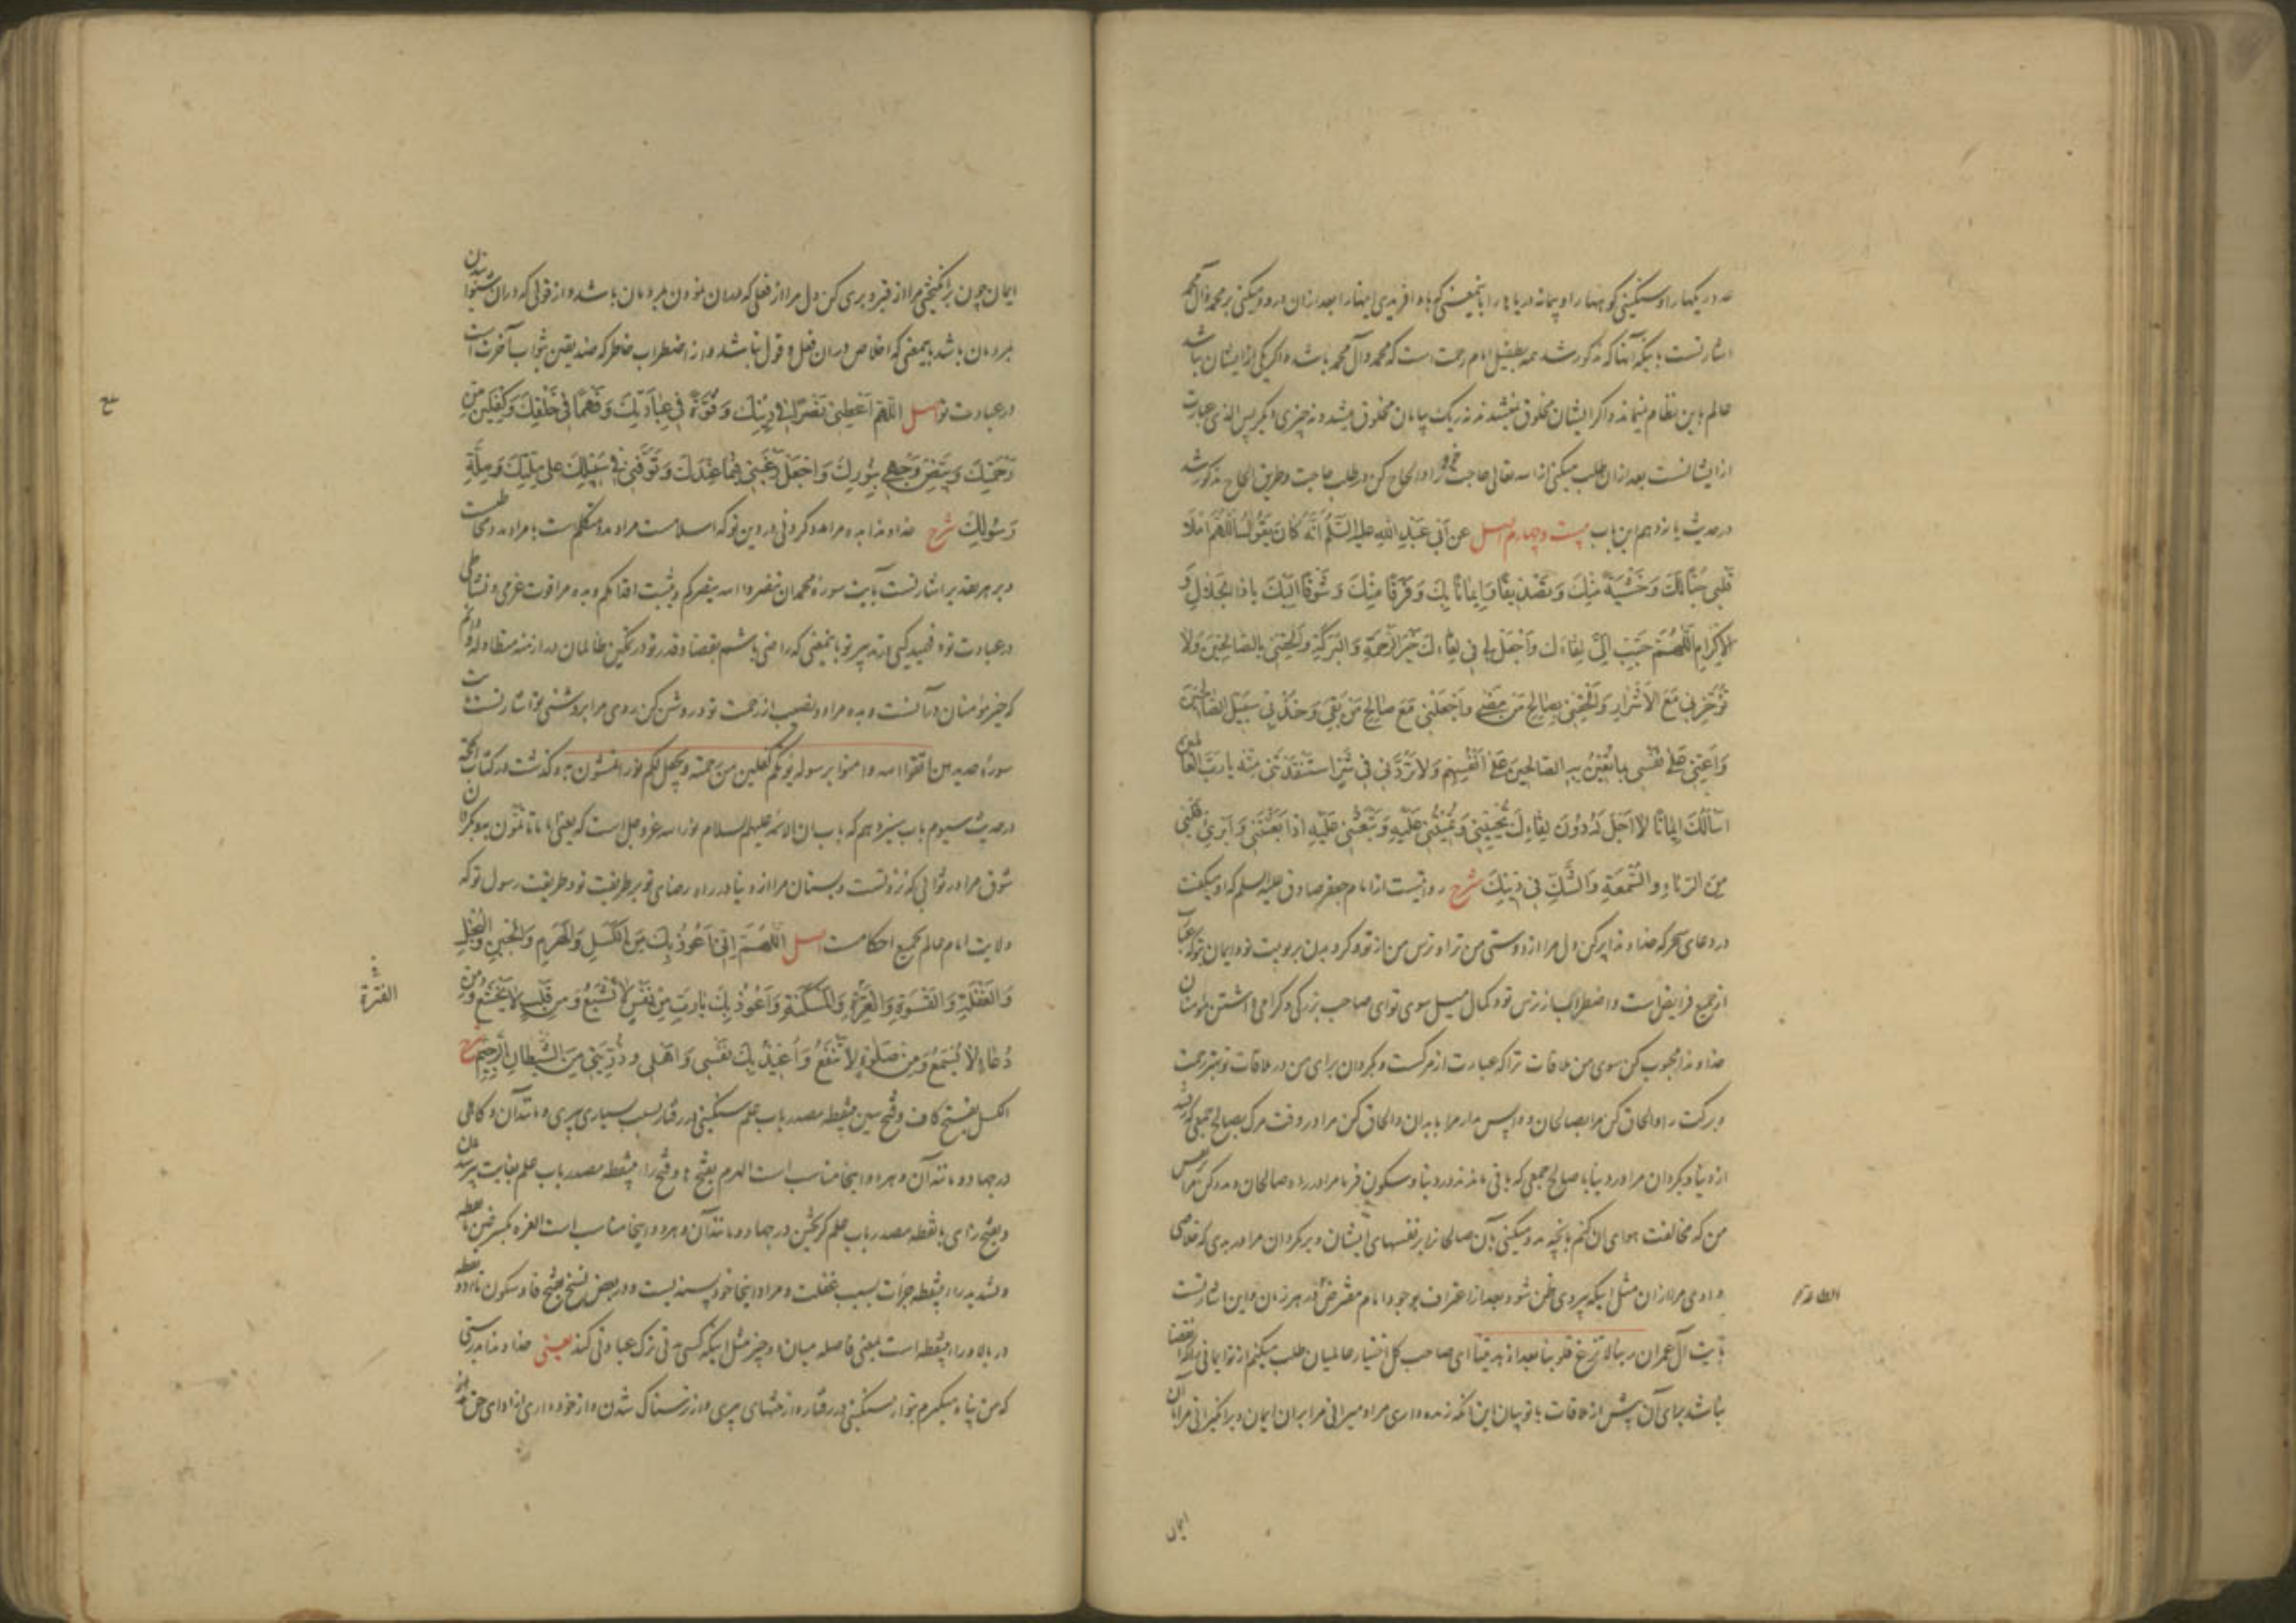 عدد ریگها را و سنگینی کوهها را و پیمانه دریاها را باین معنی که باو آفریدی اینها را بعد ازان درود میکنی بر محمد و آل محمد
اشارتست باینکه آنها که مذکور شد همه بطفیل امام رحمت است که محمد و آل محمد باشد و اگر یکی از ایشان نباشد
عالم باین نظام نمیماند و اگر ایشان مخلوق نمیشدند نه ریک بیابان مخلوق میشد و نه چیزی دیگر پس الذی عبارت
از ایشانست بعد ازان طلب میکنی از الله تعالی حاجت خود را و الحاح کن در طلب حاجت و طریق الحاح مذکور شد
در حدیث یازدهم این باب بیست و چهارم اصل عَن أَبِي عَبْدِ اللهِ عليه السَّلَم أَنَّهُ كَانَ يَقُولُ اللَّهُمَّ امْلَأ
قَلْبِي حُبًّا لَكَ وَخَشْيَةً مِنْكَ وَتَصْدِيقًا وَإِيمَانًا بِكَ وَفَرَقًا مِنْكَ وَشَوْقًا إِلَيْكَ يَا ذَا الْجَلَالِ وَ
الإِكْرَامِ اللَّهُمَّ حَبِّبْ إِلَيَّ لِقَاءَكَ وَاجْعَلْ لِي فِي لِقَاءِكَ خَيْرَ الرَّحْمَةِ وَالْبَرَكَةِ وَأَلْحِقْنِي بِالصَّالِحِينَ وَلَا
تُؤَخِّرْنِي مَعَ الأَشْرَارِ وَأَلْحِقْنِي بِصَالِحِ مَن مَضَى وَاجْعَلْنِي مَعَ صَالِحِ مَن بَقِيَ وَخُذْ بِي سَبِيلَ الصَّالِحِينَ
وَأَعِنِّي عَلَى نَفْسِي بِمَا تُعِينُ بِهِ الصَّالِحِينَ عَلَى أَنْفُسِهِمْ وَلَا تَرُدَّنِي فِي شَرٍّ اسْتَنْقَذْتَنِي مِنْهُ يَا رَبَّ العَالَمِينَ
أَسْأَلُكَ إِيمَانًا لَا أَجَلَ لَهُ دُونَ لِقَاءِكَ تُحْيِينِي وَتُمِيتُنِي عَلَيْهِ وَتَبْعَثُنِي عَلَيْهِ إِذَا بَعَثْتَنِي وَأَبْرِئْ قَلْبِي
مِنَ الرِّيَاءِ وَالسُّمْعَةِ وَالشَّكِّ فِي دِينِكَ شرح روایتست از امام جعفر صادق علیه السلم که او میگفت
در دعای سحر که خداوندا پر کن دل مرا از دوستی من ترا و ترس من از تو و گرویدن بربوبیت تو و ایمان بتو که عبارت
از جمیع فرایض است و اضطراب از ترس تو و کمال میل سوی تو ای صاحب بزرگی و گرامی داشتن مؤمنان
خداوندا محبوب کن سوی من ملاقات ترا که عبارت از مرگست و بگردان برای من در ملاقات تو بهتر رحمت
و برکت را و الحاق کن مرا بصالحان و واپس مدار مرا با بدان و الحاق کن مرا در وقت مرگ بصالح جمعی که رفتند
از دنیا و بگردان مرا در دنیا با صالح جمعی که باقی ماندند در دنیا و سکون فرما مرا در راه صالحان و مدد کن مرا بر نفس
من که مخالفت هوای آن کنم بآنچه مدد میکنی بآن صالحانرا بر نفسهای ایشان و بر مگردان مرا در بدی که خلاصی
دادی مرا ازان مثل اینکه پیروی ظن شود بعد از اعتراف بوجود امام مفترض الطاعة در هر زمان و این اشارتست
بآیت آل عمران ربنا لا تزغ قلوبنا بعد اذ هدیتنا ای صاحب کل اختیار عالمیان طلب میکنم از تو ایمانی را که انقضا
نباشد برای آن پیش از ملاقات با تو بیان این آنکه زنده داری مرا و میرانی مرا بران ایمان و برانگیزانی مرا بران
ایمان
ایمان چون برانگیختی مرا از قبر و بری کن دل مرا از فعلی که دران نمودن بمردمان باشد و از قولی که دران شنوانیدن
بمردمان باشد بیمعنی که اخلاص دران فعل و قول نباشد و از اضطراب خاطر که ضد یقین بثواب آخرت است
در عبادت تو اصل اللَّهُمَّ أَعْطِنِي نَصْرًا فِي دِينِكَ وَقُوَّةً فِي عِبَادَتِكَ وَفَهْمًا فِي خَلْقِكَ وَكِفْلَيْنِ مِنْ
رَحْمَتِكَ وَبَيِّضْ وَجْهِي بِنُورِكَ وَاجْعَلْ رَغْبَتِي فِيمَا عِنْدَكَ وَتَوَفَّنِي فِي سَبِيلِكَ عَلَى مِلَّتِكَ وَمِلَّةِ
رَسُولِكَ شرح خداوندا بده مرا مدد کردنی در دین تو که اسلامست مراد مدد متکلمست یا مراد مدد مخاطبست
و بر هر تقدیر اشارتست بآیت سوره محمد ان تنصروا الله ینصرکم و یثبت اقدامکم و بده مرا قوت عزمی و نشاطی
در عبادت تو و فهمیدگی در تدبیر تو باین معنی که راضی باشم بقضا و قدر تو در تمکین ظالمان در ازمنه متطاوله و دانم
که خیر مؤمنان درآنست و بده مرا دو نصیب از رحمت تو و روشن کن روی مرا بروشنی تو اشارتست بآیت
سوره حدید اتقوا الله و امنوا برسوله یؤتکم کفلین من رحمته و یجعل لکم نورا تمشون به و گذشت در کتاب الحجة
در حدیث سیوم باب سیزدهم که باب ان الائمه علیهم السلام نور الله عز و جل است که یعنی اماما تأتمون به و بگردان
شوق مرا در ثوابی که نزد تست و بستان مرا از دنیا در راه رضای تو بر طریقت تو و طریقت رسول تو که
ولایت امام عالم بجمیع احکامست اصل اللَّهُمَّ إِنِّي أَعُوذُ بِكَ مِنَ الْكَسَلِ وَالْهَرَمِ وَالْجُبْنِ وَالْبُخْلِ
وَالْغَفْلَةِ وَالْقَسْوَةِ وَالْغِرَّةِ وَالْمَسْكَنَةِ وَأَعُوذُ بِكَ يَا رَبِّ مِنْ نَفْسٍ لَا تَشْبَعُ وَمِن قَلْبٍ لَا يَخْشَعُ وَمِن
دُعَاءٍ لَا يُسْمَعُ وَمِن صَلَوةٍ لَا تَنْفَعُ وَأُعِيذُ بِكَ نَفْسِي وَأَهْلِي وَذُرِّيَّتِي مِنَ الشَّيْطَانِ الرَّجِيمِ شرح
الکسل بفتح کاف و فتح سین بینقطه مصدر باب علم سنگینی در رفتار بسبب بسیاری پیری و مانند آن و کاهلی
در جهاد و مانند آن و هر دو اینجا مناسب است الهرم بفتح ها و فتح راء بینقطه مصدر باب علم بغایت پیر شدن
و بفتح زای بانقطه مصدر باب علم گریختن در جهاد و مانند آن و هر دو اینجا مناسب است الغرة بکسر غین بانقطه
و تشدید راء بینقطه جرأت بسبب غفلت و مراد اینجا خودپسندیست و در بعض نسخ بفتح فا و سکون تاء دو نقطه
در بالا و راء بینقطه است بمعنی فاصله میان دو چیز مثل اینکه کسی مدتی ترک عبادتی کند یعنی خداوندا بدرستی
که من پناه میگیرم بتو از سنگینی در رفتار و از منتهای پیری و از ترسناک شدن و از خودداری از ادای حق
الفترة